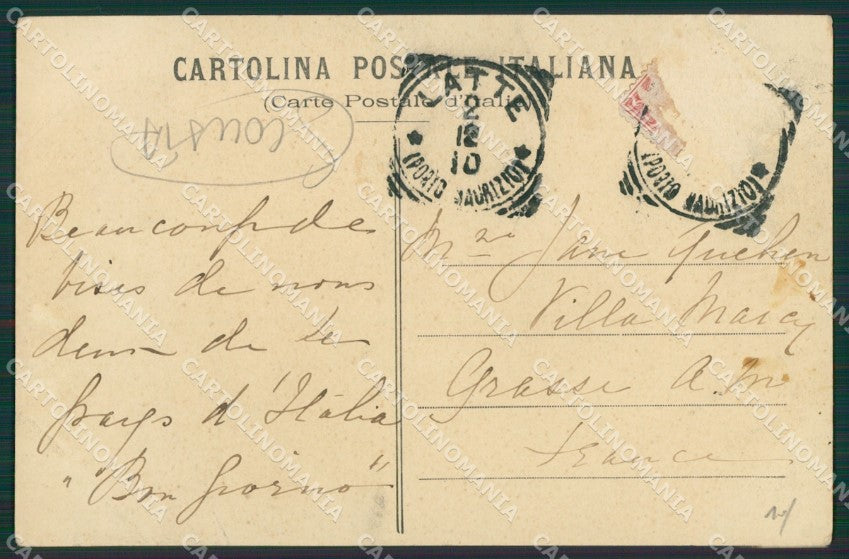 CARTOLINA POSTALE ITALIANA
(Carte Postale d'Italie)
LATTE
2
12
10
(PORTO MAURIZIO)
(PORTO MAURIZIO)
Beaucoup de
bises de nous
deux de le
pays d'Italia
"Bon giorno"
Jane
Villa
Grasse A.M
France
CARTOLINOMANIA